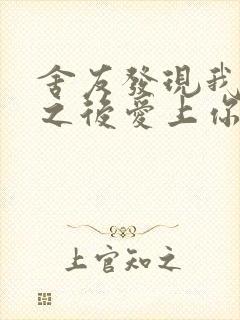 舍友發現我
之後愛上你
上官知之